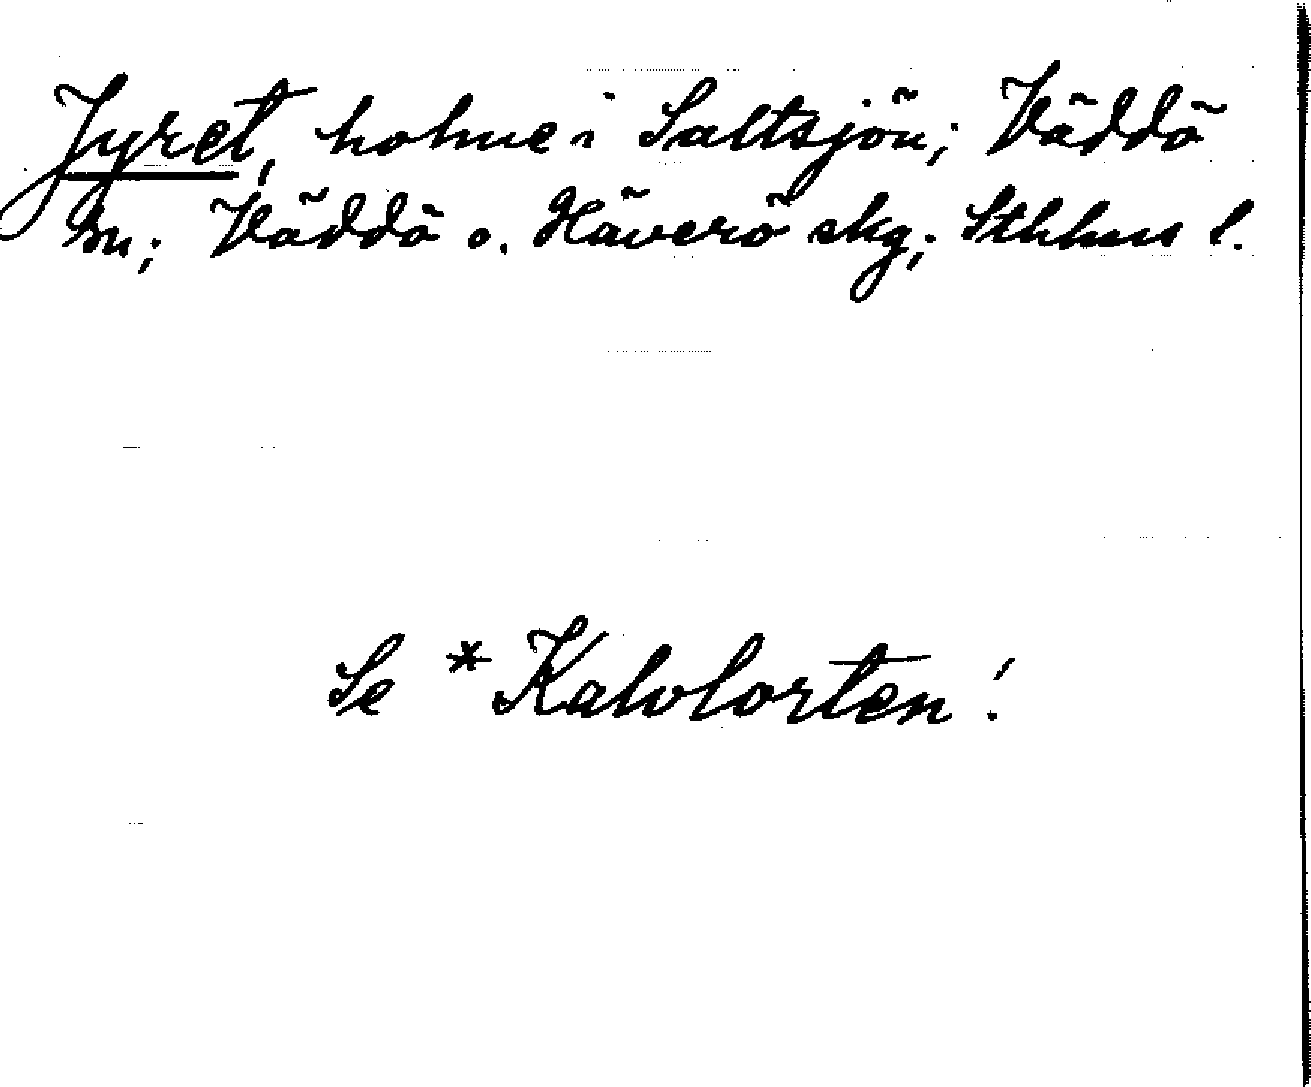 Jyret, holme i Saltsjön; Väddö
sn; Väddö o. Häverö skg; Sthlms l.
Se *Kalvlorten!